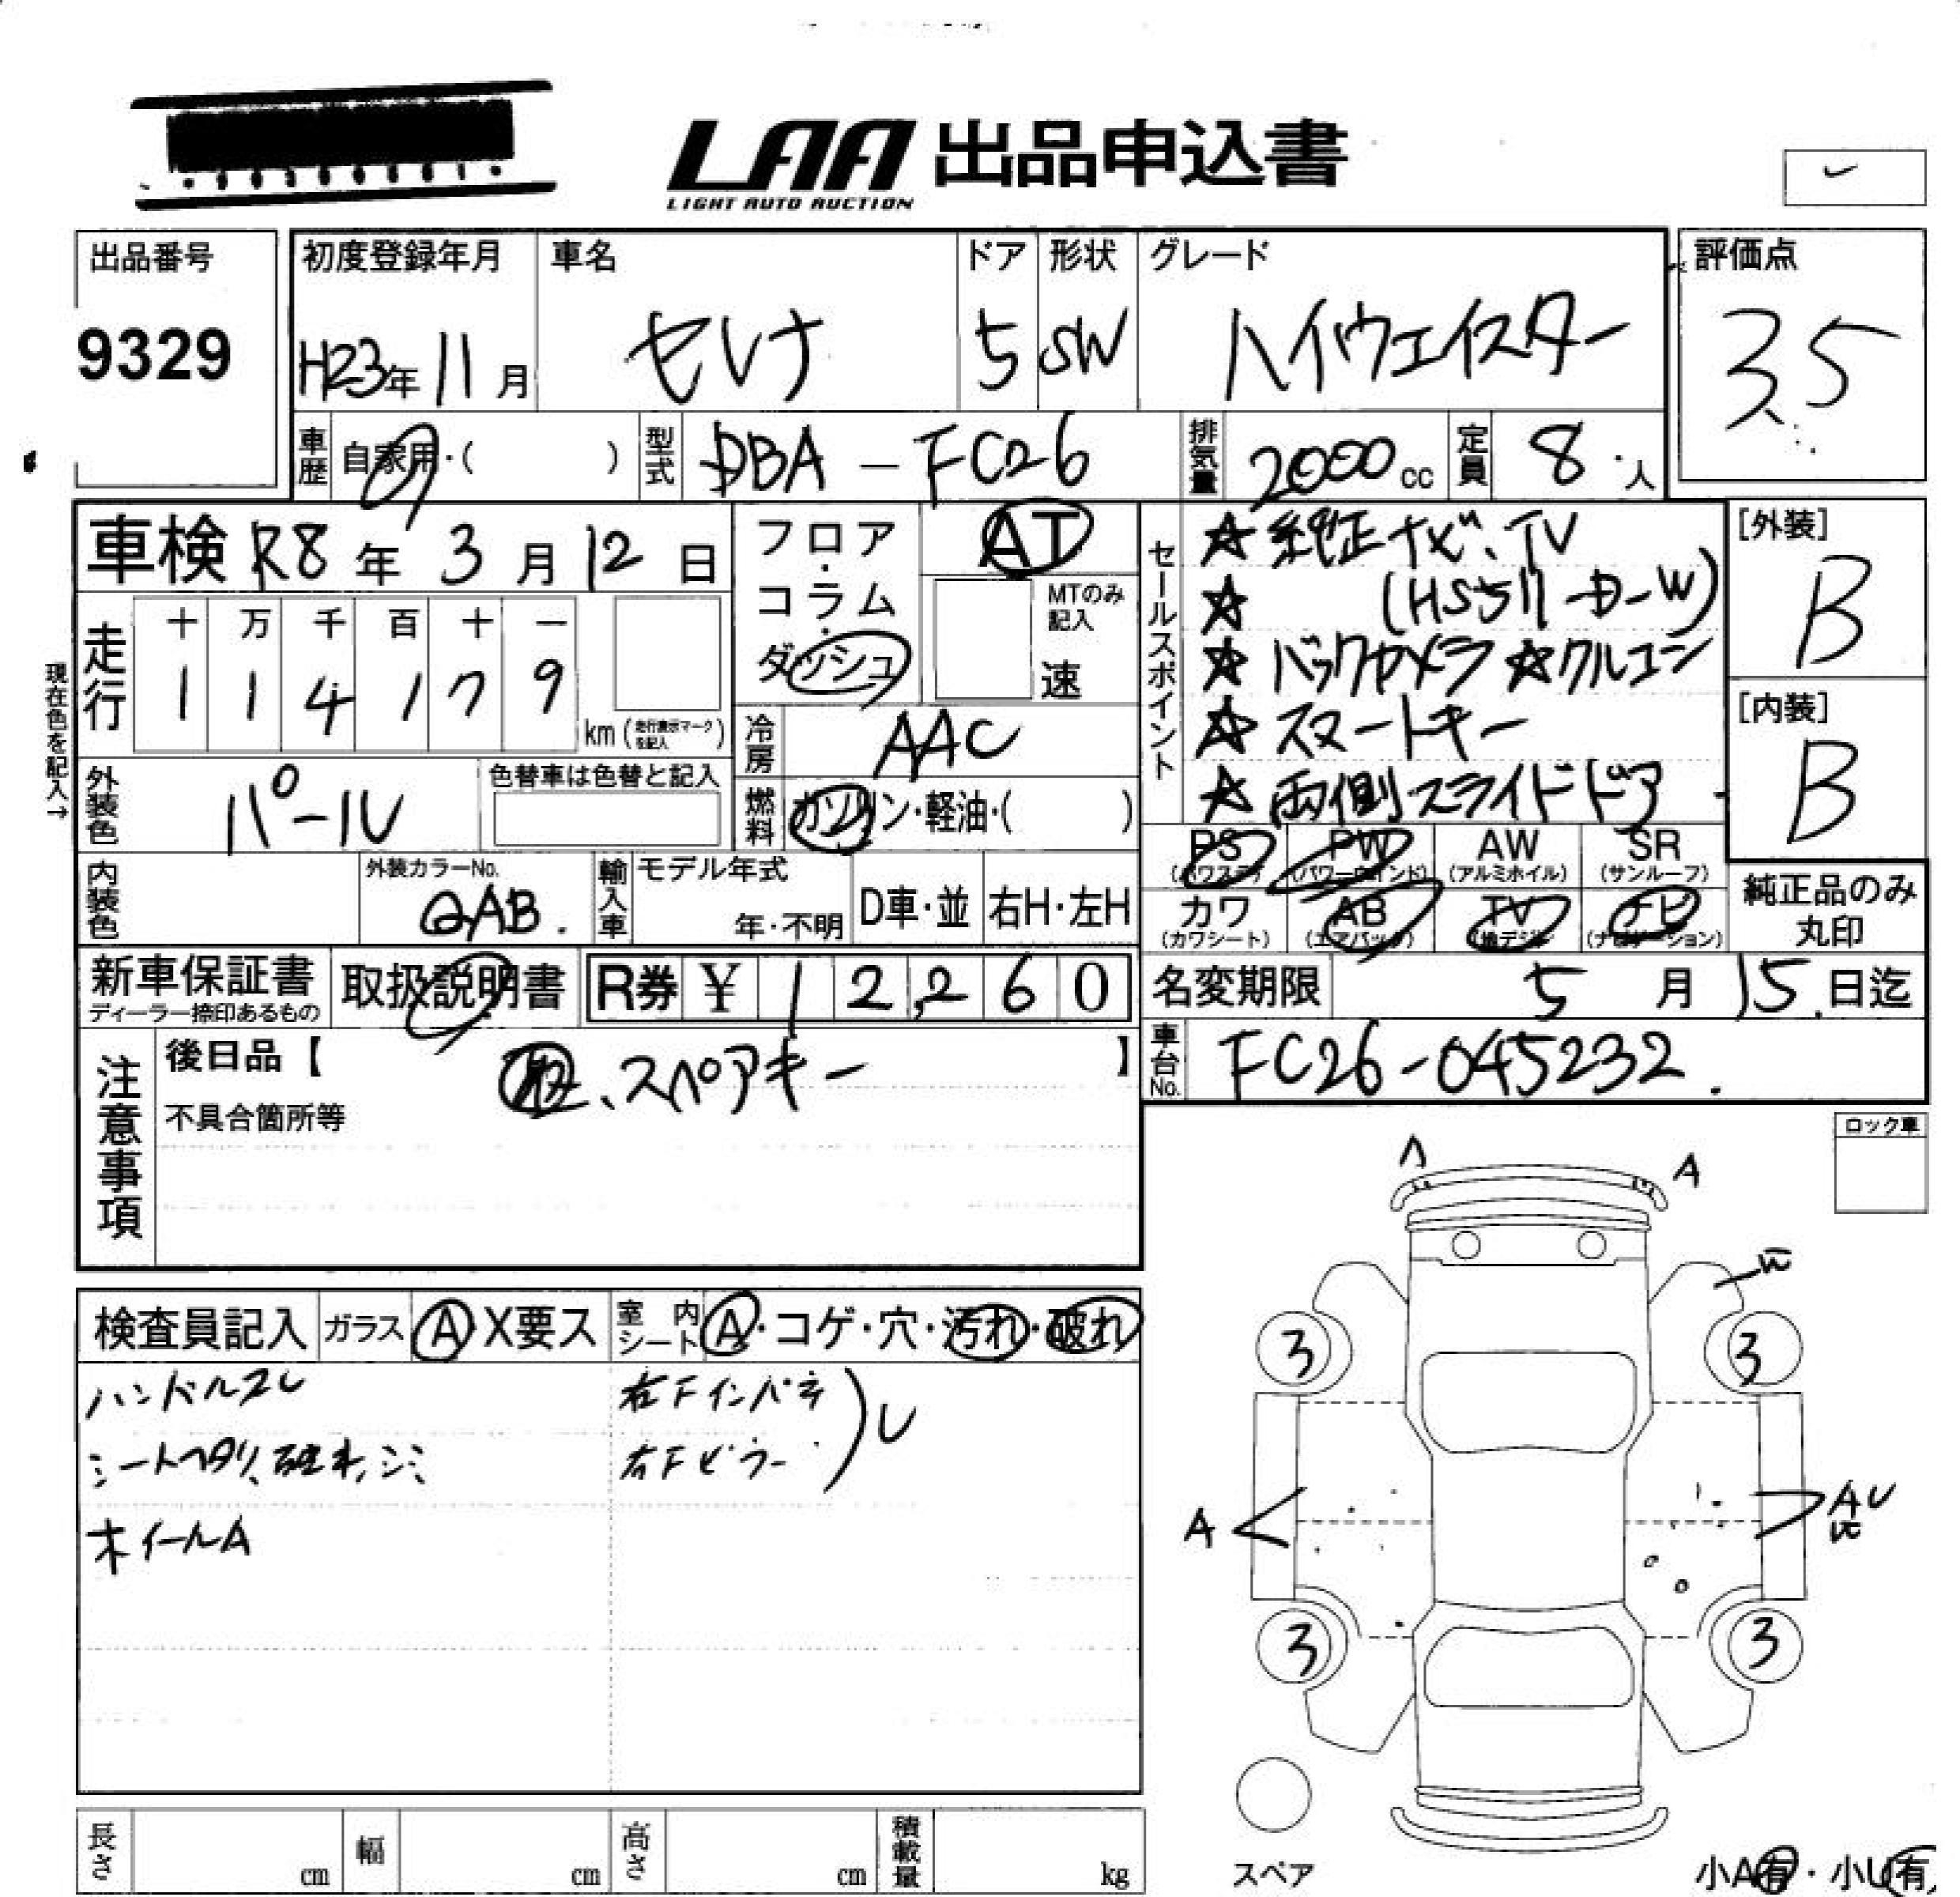 LAA 出品申込書
LIGHT AUTO AUCTION
出品番号
9329
初度登録年月
H23年11月
車名
セレナ
ドア
5
形状
SW
グレード
ハイウェイスター
評価点
3.5
車歴
自家用・( )
型式
DBA-FC26
排気量
2000cc
定員
8人
車検 R8年3月12日
フロア・コラム・ダッシュ
AT
MTのみ記入
速
走行
十 万 千 百 十 一
1 1 4 1 7 9
km(走行表示マークを記入)
現在色を記入→
冷房
AAC
外装色
パール
色替車は色替と記入
燃料
ガソリン・軽油・( )
内装色
外装カラーNo.
QAB.
輸入車
モデル年式
年・不明
D車・並
右H・左H
セールスポイント
☆純正ナビ、TV
☆ (HS511D-W)
☆バックカメラ ☆クルコン
☆スマートキー
☆両側スライドドア
[外装]
B
[内装]
B
PS AW SR
(パワステ) (パワーウインド) (アルミホイル) (サンルーフ)
PW
カワ AB TV ナビ
(カワシート) (エアバック) (地デジ) (ナビゲーション)
純正品のみ
丸印
新車保証書
ディーラー捺印あるもの
取扱説明書
R券 ¥12,260
名変期限 5月15日迄
車台No.
FC26-045232.
注意事項
後日品【 、スペアキー 】
不具合箇所等
ロック車
検査員記入
ガラス A X要ス
室内シート A・コゲ・穴・汚れ・破れ
ハンドルスレ
シートヘタリ、破れ、シミ
ホイールA
右Fインパネ
右Fピラー
U
A
A
W
3
3
A
AU
W
3
3
スペア
長さ cm
幅 cm
高さ cm
積載量 kg
小A有・小U有